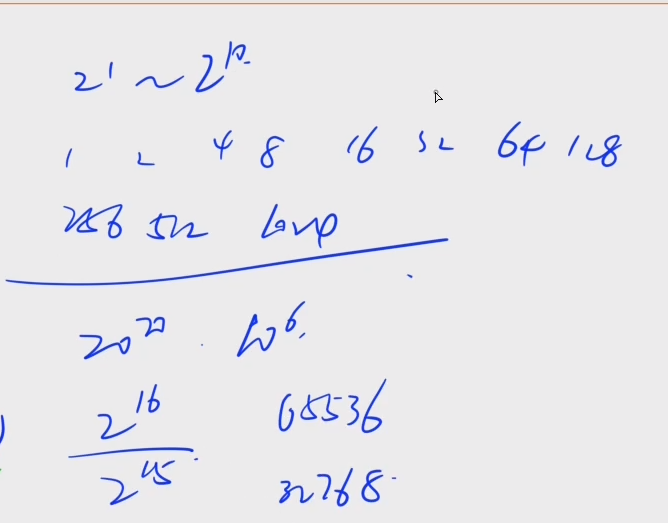 2¹ ~ 2¹⁰
1 2 4 8 16 32 64 128
256 512
20²⁰ 10⁶
2¹⁶ 65536
2¹⁵ 32768